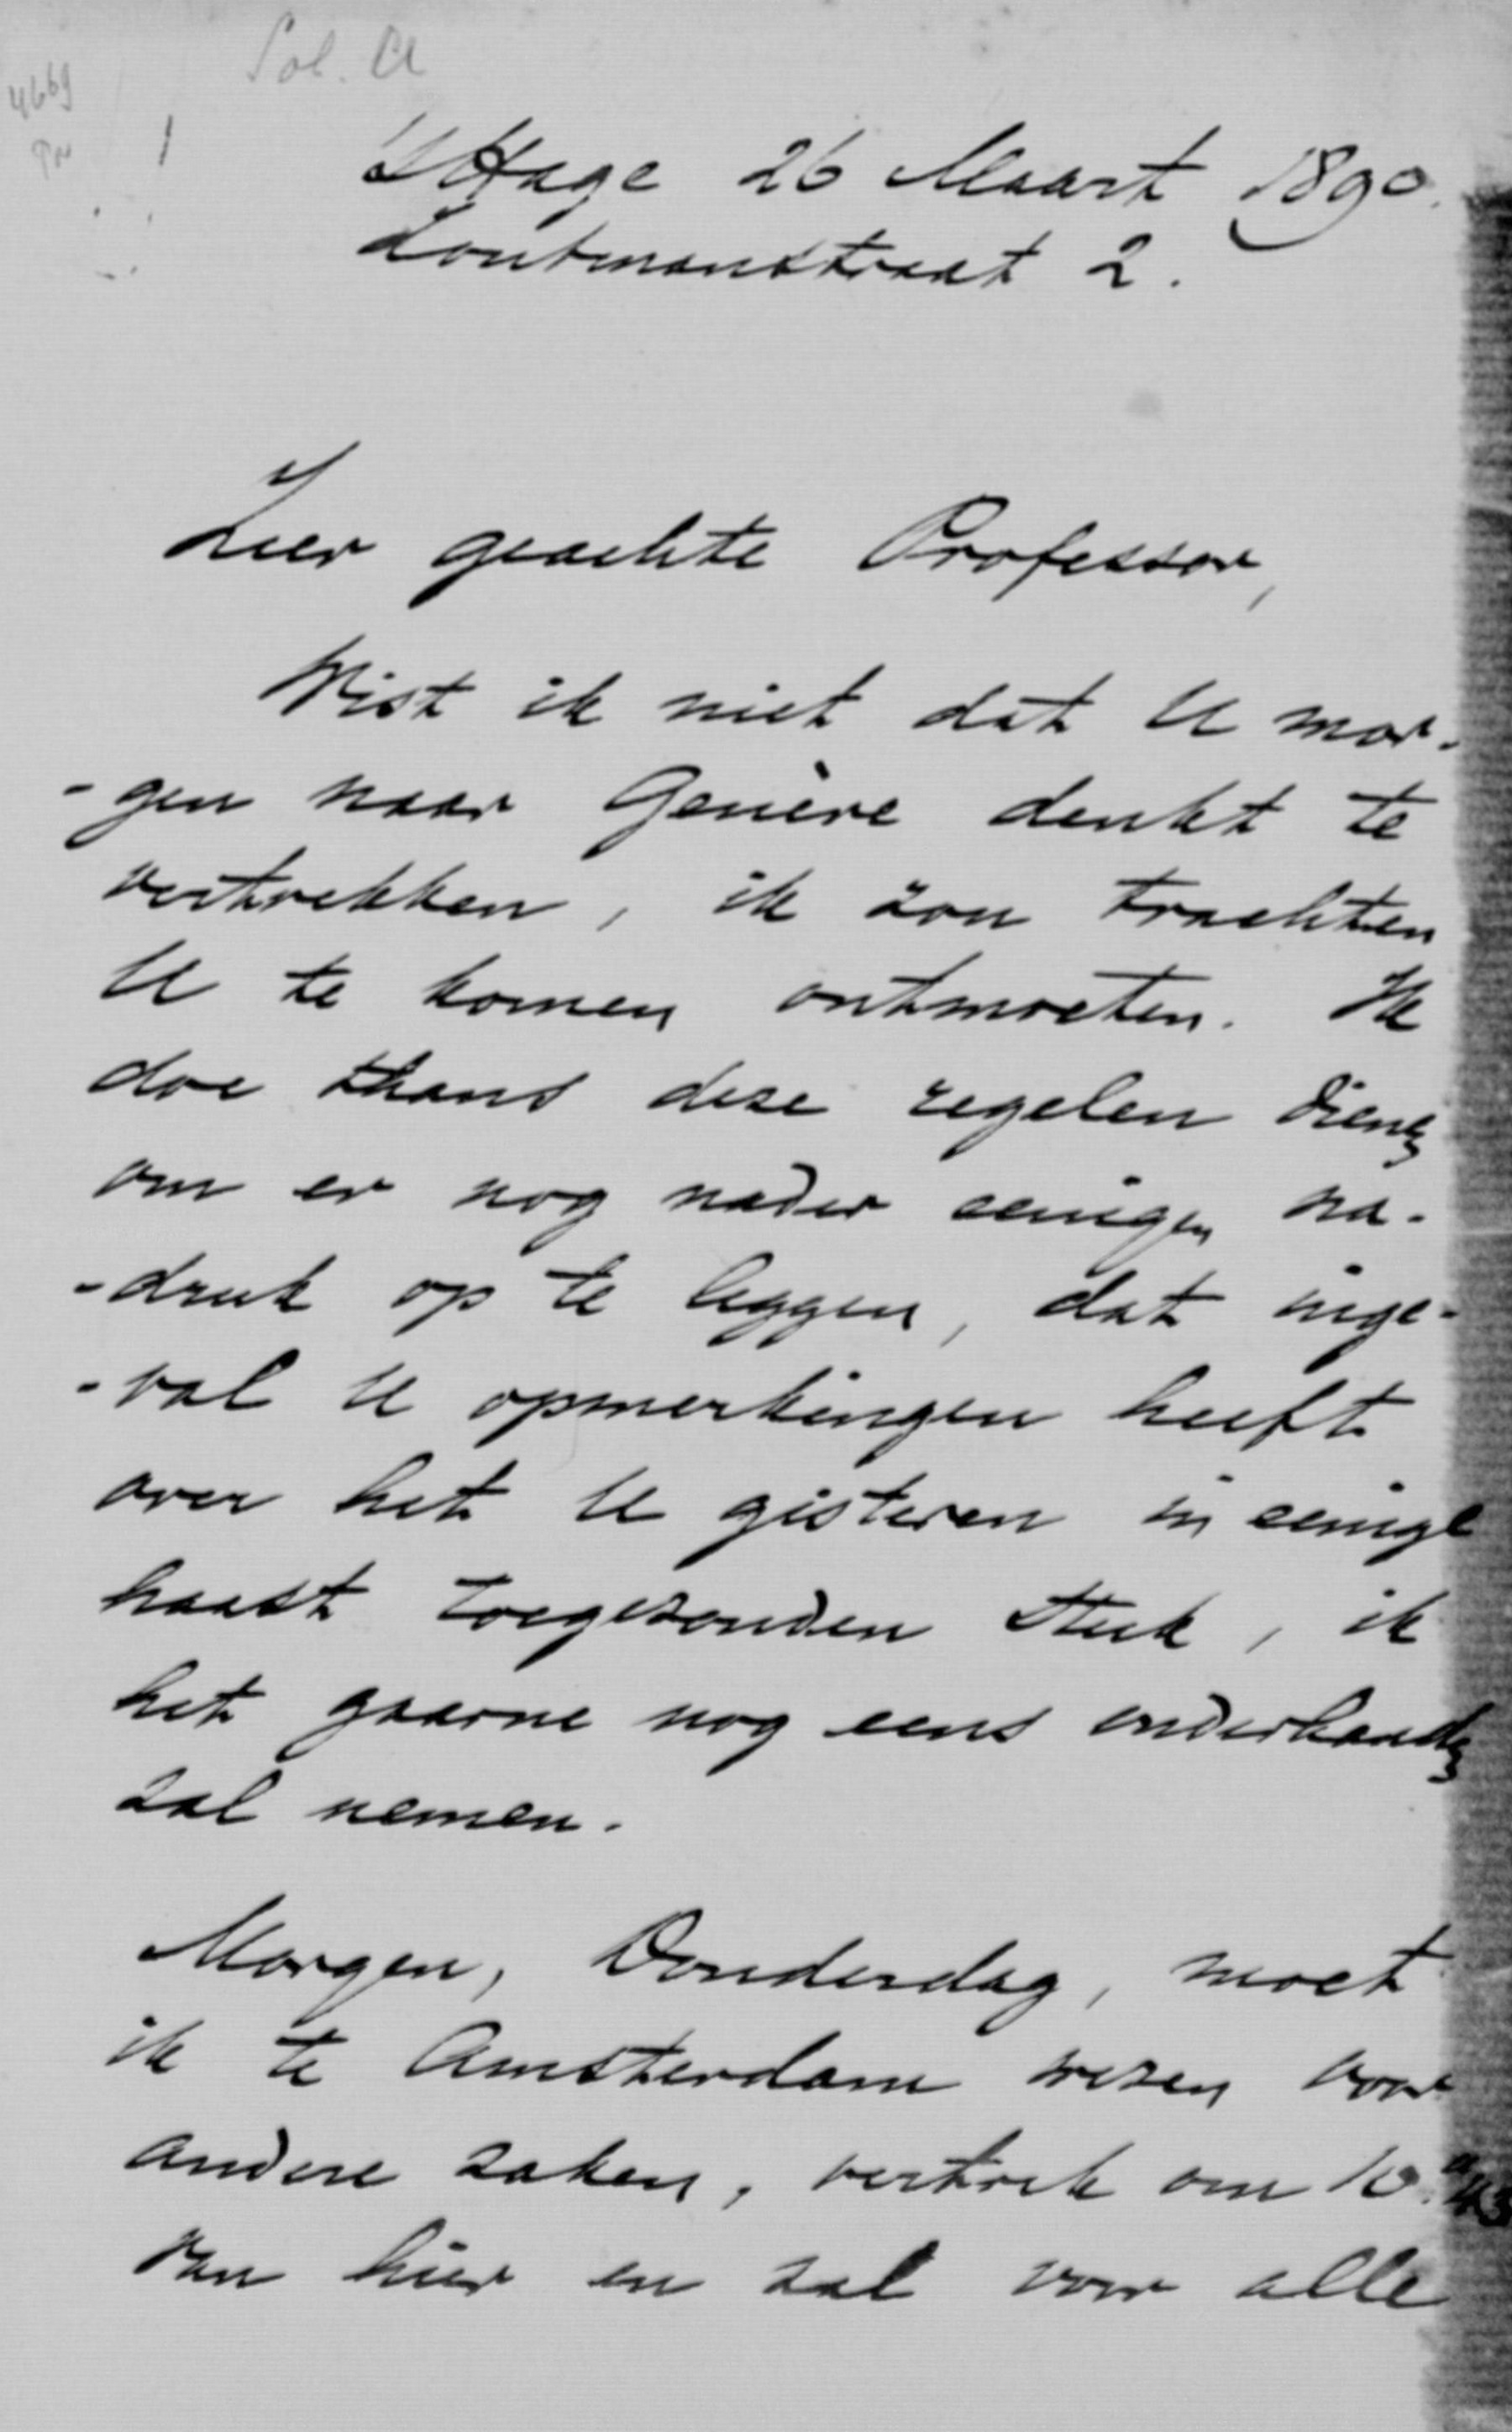 Sol. A
4669
'sHage 26 Maart 1890.
Zoutmanstraat 2.
Zeer geachte Professor,
Wist ik niet dat U mor-
-gen naar Genève denkt te
vertrekken, ik zou trachten
U te komen ontmoeten. Ik
doe thans deze regelen dienen
om er nog nader eenigen na-
-druk op te leggen, dat inge-
-val U opmerkingen heeft
over het U gisteren in eenige
haast toegezonden stuk, ik
het gaarne nog eens onderhanden
zal nemen.
Morgen, Donderdag, moet
ik te Amsterdam wezen voor
andere zaken, vertrek om 10.
van hier en zal voor alle